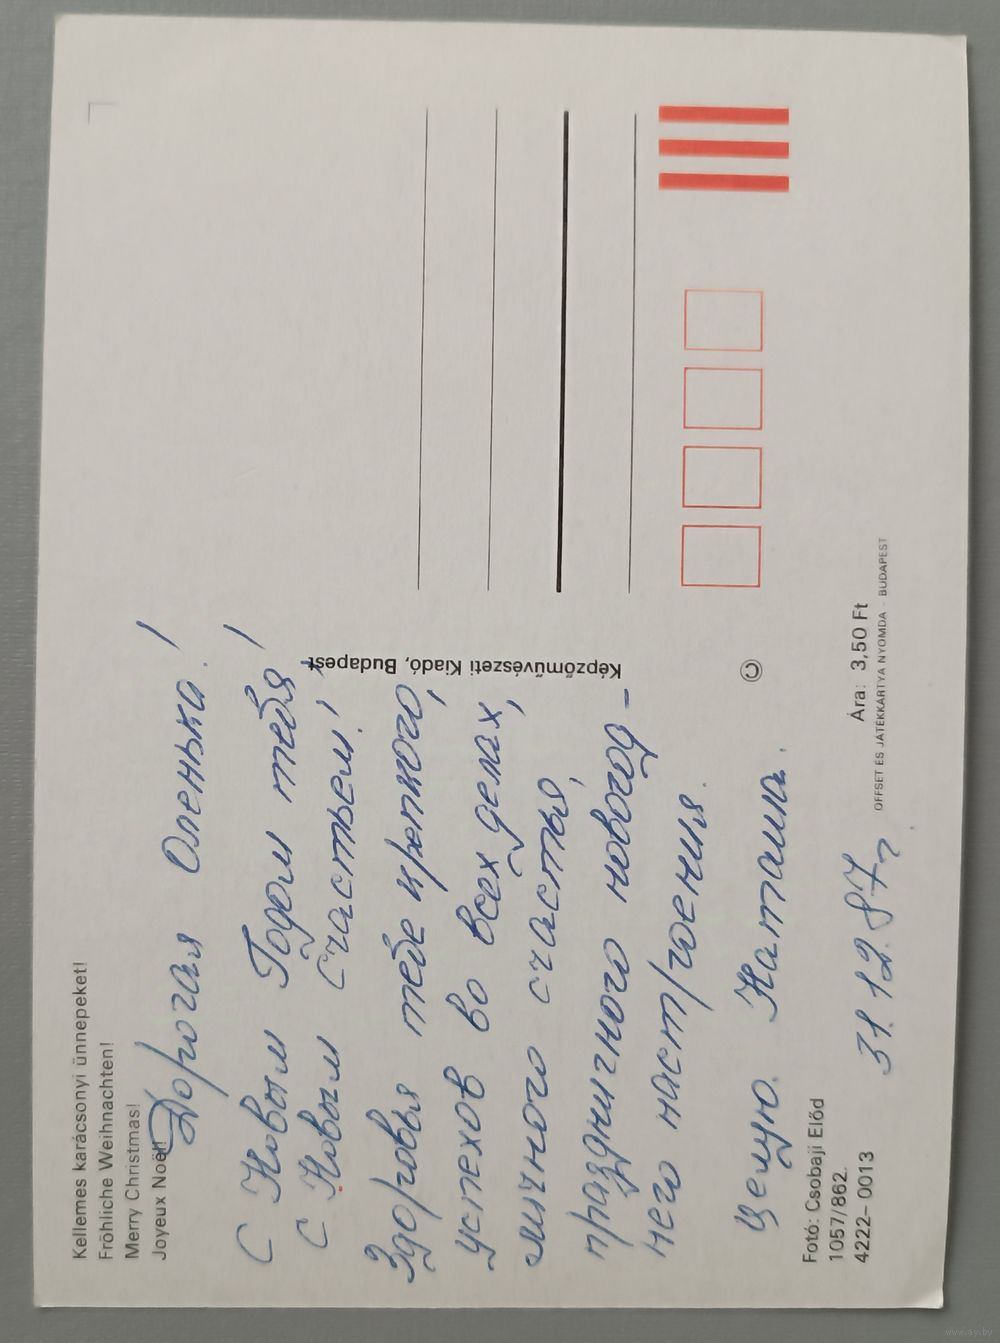 Kellemes karácsonyi ünnepeket!
Fröhliche Weihnachten!
Merry Christmas!
Joyeux Noël!
Дорогая Оленька!
С Новым Годом тебя!
С Новым счастьем!
Здоровья тебе крепкого,
успехов во всех делах,
личного счастья,
праздничного новогод-
него настроения.
Целую. Наташа.
31.12.87г.
Fotó: Csobaji Előd
1057/862.
4222–0013
Képzőművészeti Kiadó, Budapest
©
Ára: 3,50 Ft
OFFSET ÉS JÁTÉKKÁRTYA NYOMDA - BUDAPEST
www.ay.by